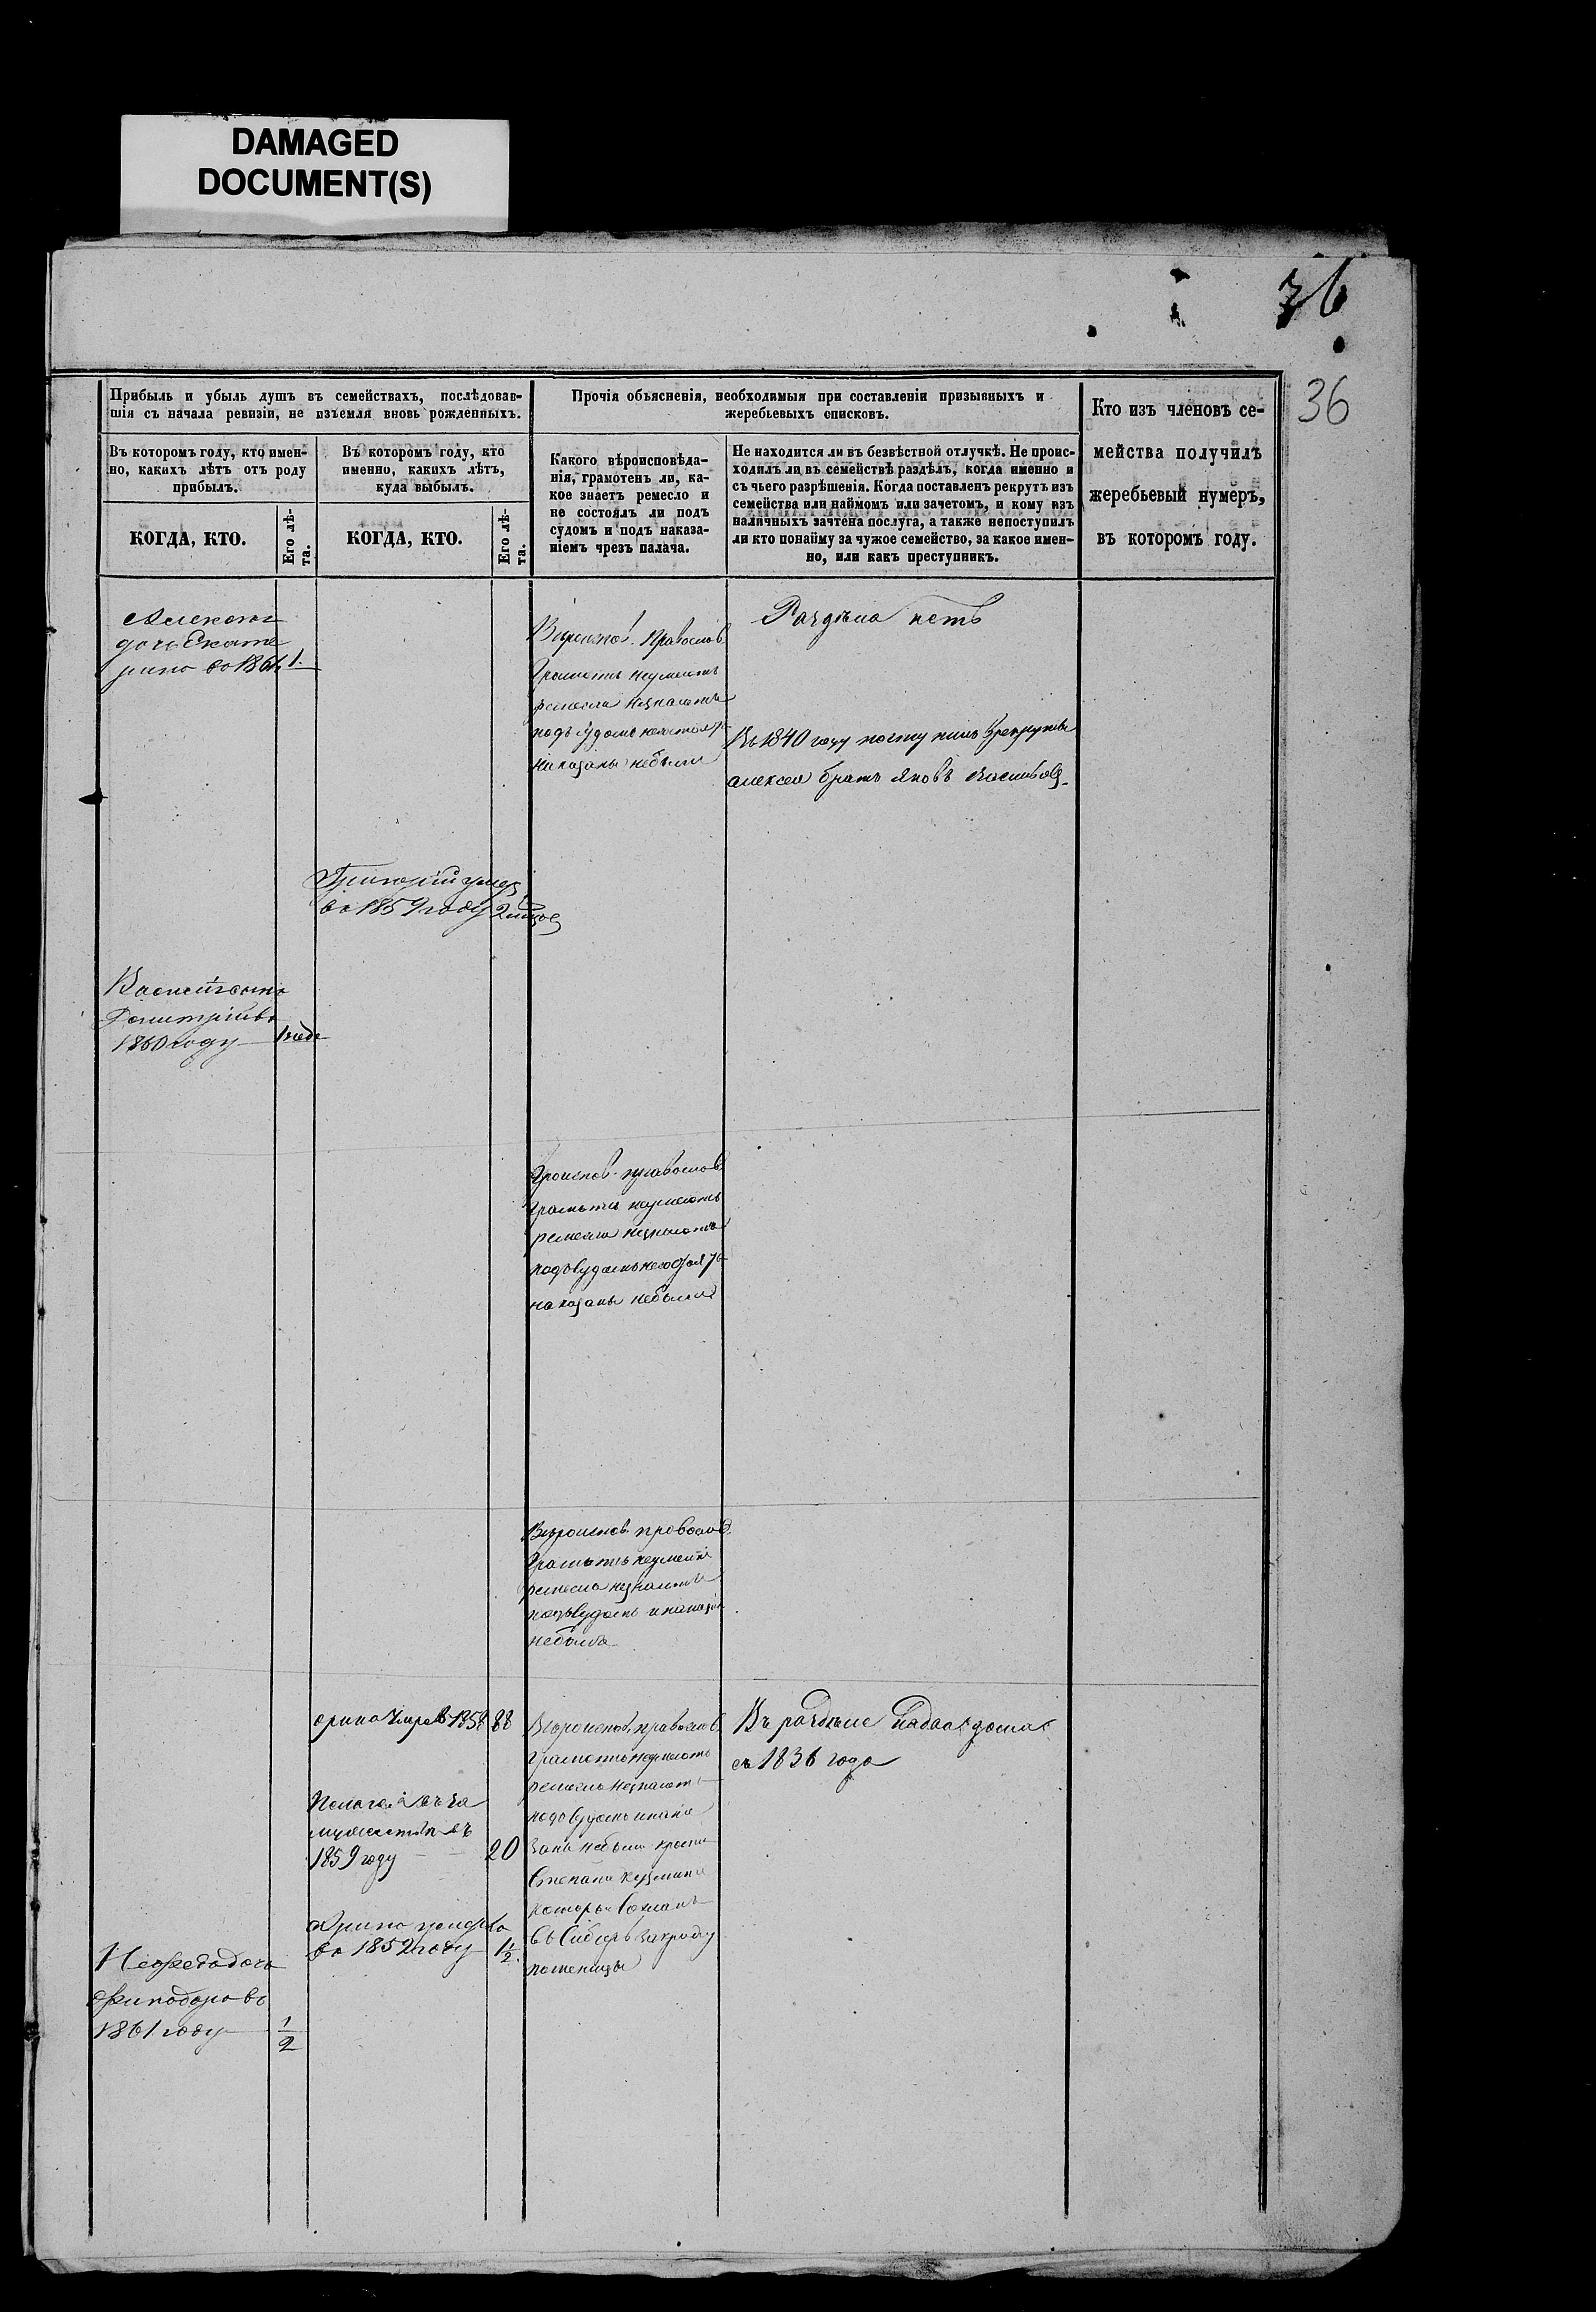 DAMAGED
DOCUMENT(S)
36
36
Прибыль и убыль душъ въ семействахъ, послѣдовав-
шія съ начала ревизіи, не изъемля вновь рожденныхъ.
Прочія объясненія, необходимыя при составленіи призывныхъ и
жеребьевыхъ списковъ.
Кто изъ членовъ се-
мейства получилъ
жеребьевый нумеръ,
въ которомъ году.
Въ которомъ году, кто имен-
но, какихъ лѣтъ отъ роду
прибылъ.
Въ которомъ году, кто
именно, какихъ лѣтъ,
куда выбылъ.
Какого вѣроисповѣда-
нія, грамотенъ ли, ка-
кое знаетъ ремесло и
не состоялъ ли подъ
судомъ и подъ наказа-
ніемъ чрезъ палача.
Не находится ли въ безвѣстной отлучкѣ. Не проис-
ходилъ ли въ семействѣ раздѣлъ, когда именно и
съ чьего разрѣшенія. Когда поставленъ рекрутъ изъ
семейства или наймомъ или зачетомъ, и кому изъ
наличныхъ зачтена послуга, а также непоступилъ
ли кто понайму за чужое семейство, за какое имен-
но, или какъ преступникъ.
КОГДА, КТО.
Его лѣ-
та.
КОГДА, КТО.
Его лѣ-
та.
дочь Екате
рина во 1861 1.
Вѣроиспов. Православ
Грамотѣ неумеютъ
ремесла незнаютъ
подъ судомъ несостоят
наказаны небыли
Раздѣла нетъ
Въ 1840 году поступилъ
алексея братъ Яковъ
Григорий умер
во 1859 году 2
Василий сынъ
Дмитрий во
1860 году 1
православ
Грамотѣ неумеютъ
ремесла незнаютъ
подъ судомъ
наказаны небыли
Вѣроиспов. православ.
Грамотѣ неумеютъ
ремесла незнаютъ
подъ судомъ
небыли
орина умре в 1858 88
Вѣроиспов. православ.
Грамотѣ неумеютъ
ремесла незнаютъ
подъ судомъ и нака
заны небыли кроме
Степана Кузмина
которы сосланъ
въ Сибирь за кражу
пшеницы
Въ разделе
съ 1836 года
за
1859 году 20
Орина умерла
во 1859 году 1½
дочь
въ
1861 году ½